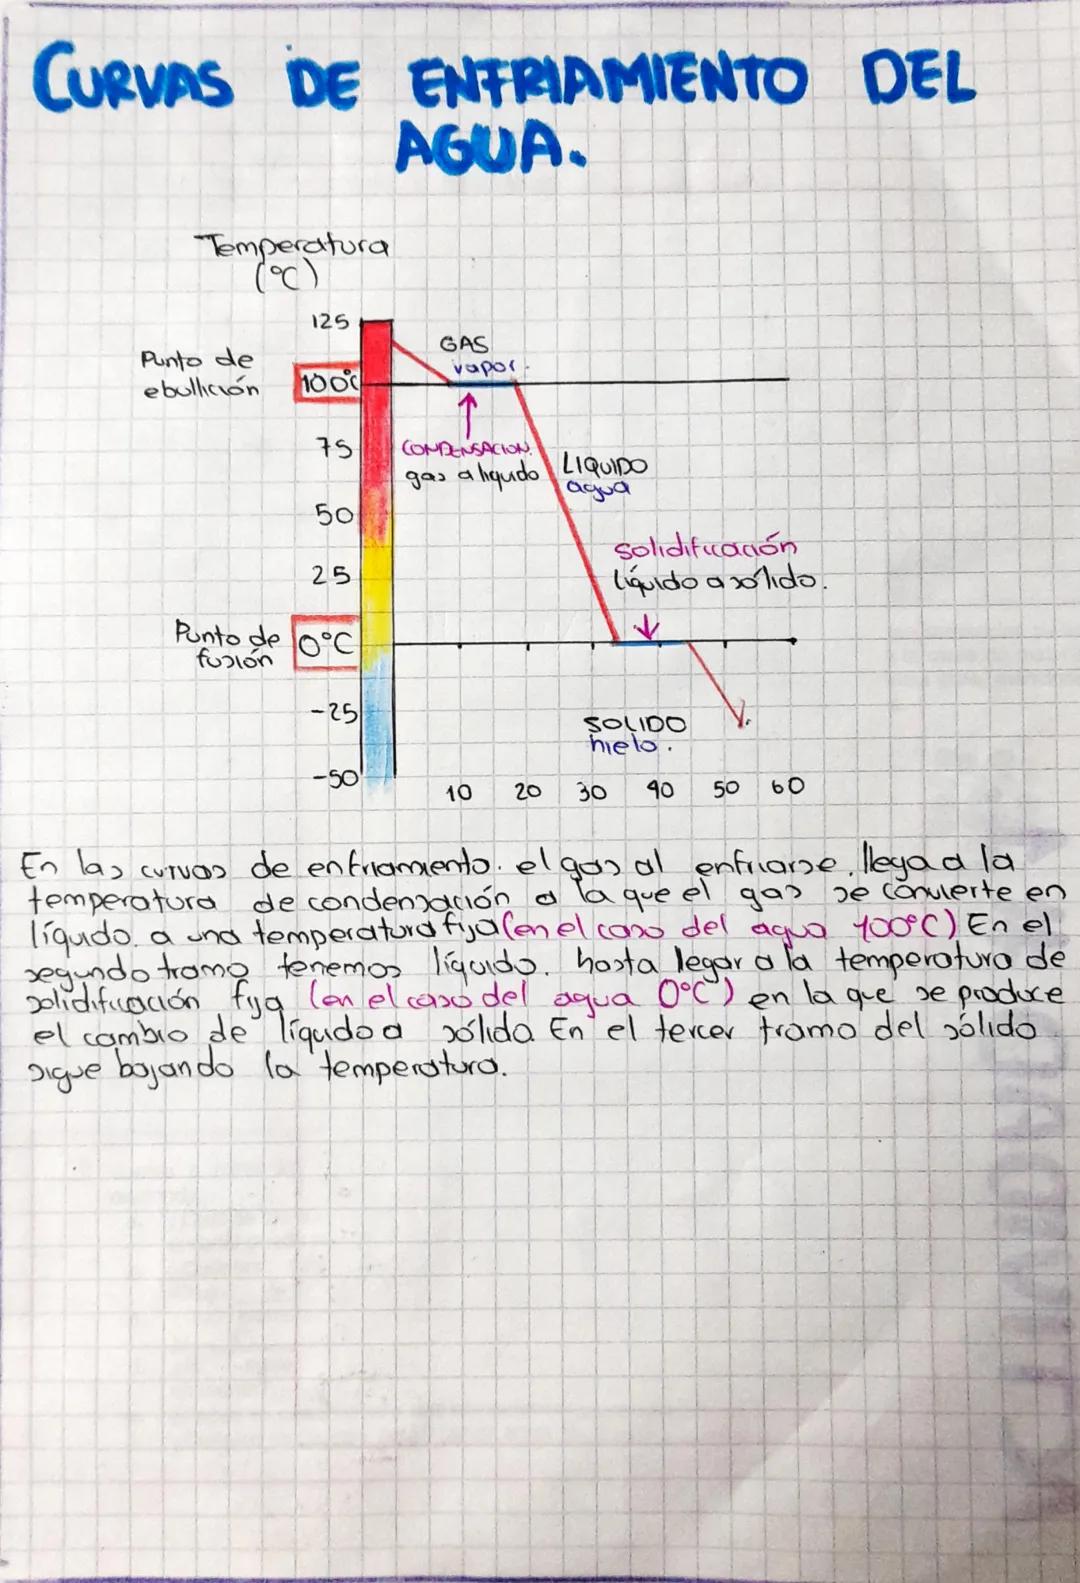 CURVAS DE ENFRIAMIENTO DEL
AGUA.
Temperatura
(°C)
125
GAS
vapor.
Punto de
ebullición
100°C
75
CONDENSACION.
gas a liquido
LIQUIDO
agua
50
solidificación
líquido a sólido.
25
Punto de
fusión
0°C
-25
SOLIDO
hielo.
-50
10 20 30 40 50 60
En las curvas de enfriamiento. el gas al enfriarse, llega a la
temperatura de condensación a la que el gas se convierte en
líquido. a una temperatura fija (en el caso del agua 100°C) En el
segundo tramo tenemos líquido. hasta legar a la temperatura de
solidificación fija (en el caso del agua 0°C) en la que se produce
el cambio de líquido a sólido En el tercer tramo del sólido
sigue bajando la temperatura.